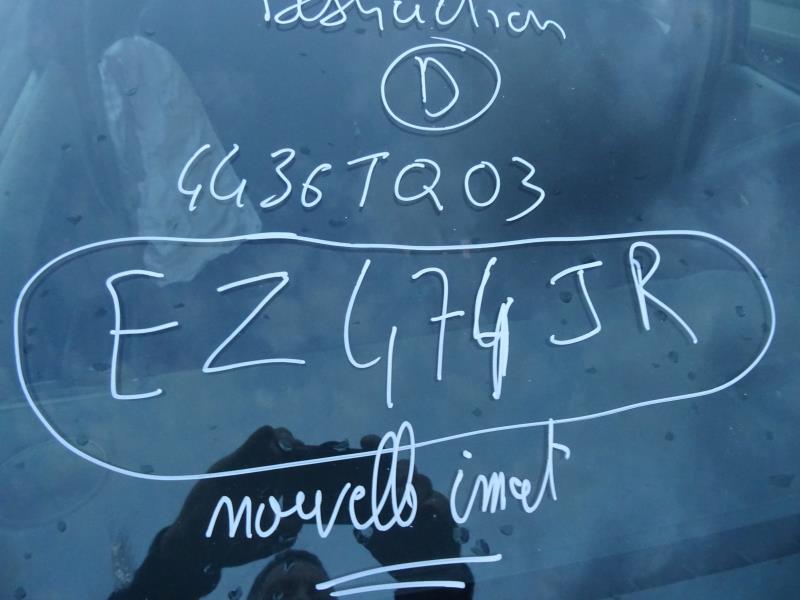 Destruction
D
4436TQ03
EZ474JR
nouvelle imat